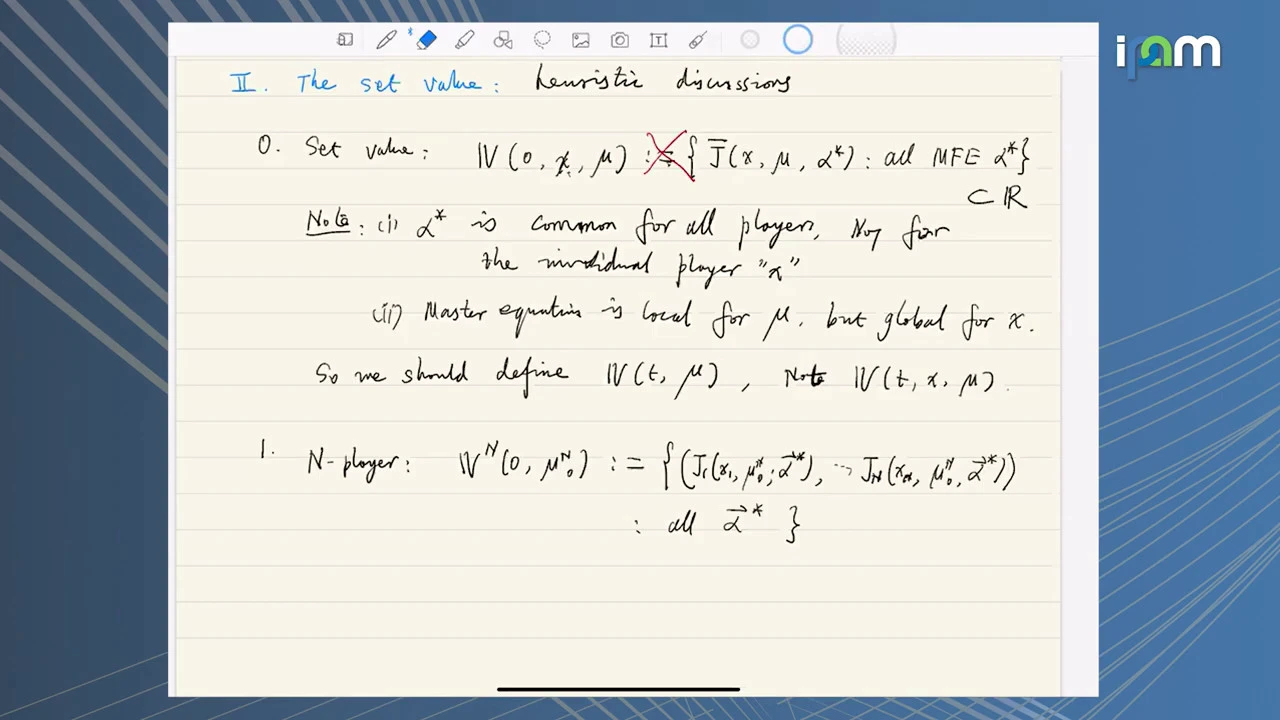 ipam
II. The set value: heuristic discussions
0. Set value: 𝕍(0, x, μ) := { J̅(x, μ, α*) : all MFE α* }
⊂ ℝ
Note: (i) α* is common for all players, Not for
the invidual player "x"
(ii) Master equation is local for μ, but global for x.
So we should define 𝕍(t, μ), Not 𝕍(t, x, μ).
1. N-player: 𝕍ᴺ(0, μ₀ᴺ) := { (J₁(x₁, μ₀ᴺ; α⃗*), ⋯ J_N(x_N, μ₀ᴺ, α⃗*))
: all α⃗* }